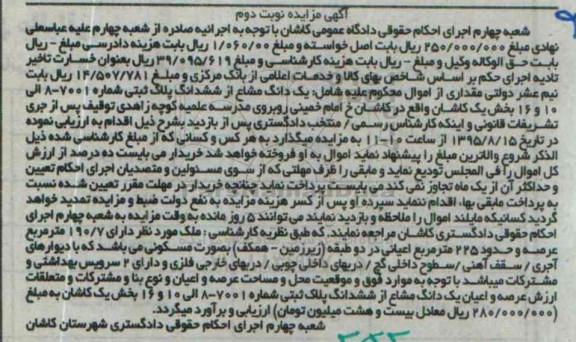 آگهی مزایده نوبت دوم
شعبه چهارم اجرای احکام حقوقی دادگاه عمومی کاشان با توجه به اجرائیه صادره از شعبه چهارم علیه عباسعلی
نهادی مبلغ ۲۵۰/۰۰۰/۰۰۰ ریال بابت اصل خواسته و مبلغ ۱/۰۶۰/۰۰ ریال بابت هزینه دادرسی مبلغ - ریال
بابت حق الوکاله وکیل و مبلغ - ریال بابت هزینه کارشناسی و مبلغ ۳۹/۰۹۵/۶۱۹ ریال بعنوان خسارت تاخیر
تادیه اجرای حکم بر اساس شاخص بهای کالا و خدمات اعلامی از بانک مرکزی و مبلغ ۱۴/۵۰۷/۷۸۱ ریال بابت
نیم عشر دولتی مقداری از اموال محکوم علیه شامل: یک دانگ مشاع از ششدانگ پلاک ثبتی شماره ۷۰۰۱-۸ الی
۱۰ و ۱۶ بخش یک کاشان واقع در کاشان خ امام خمینی روبروی مدرسه علمیه کوچه زاهدی توقیف پس از جری
تشریفات قانونی و اینکه کارشناس رسمی / منتخب دادگستری پس از بازدید بشرح ذیل اقدام به ارزیابی نموده
در تاریخ ۱۳۹۵/۸/۱۵ از ساعت ۱۰-۱۱ به مزایده میگذارد به هر کس و کسانی که از مبلغ کارشناسی شده ذیل
الذکر شروع والاترین مبلغ را پیشنهاد نماید اموال به او فروخته خواهد شد خریدار می بایست ده درصد از ارزش
کل اموال را فی المجلس تودیع نماید و مابقی را ظرف مهلتی که از سوی مسئولین و متصدیان اجرای احکام تعیین
و حداکثر آن از یک ماه تجاوز نمی کند می بایست پرداخت نماید چنانچه خریدار در مهلت مقرر تعیین شده نسبت
به پرداخت مابقی بها، اقدام ننماید سپرده او پس از کسر هزینه مزایده به نفع دولت ضبط و مزایده تمدید خواهد
گردید کسانیکه مایلند اموال را ملاحظه و بازدید نمایند می توانند ۵ روز مانده به وقت مزایده به شعبه چهارم اجرای
احکام حقوقی دادگستری کاشان مراجعه نمایند. که طبق نظریه کارشناسی : ملک مورد نظر دارای ۱۹۰/۷ مترمربع
عرصه و حدود ۲۲۵ مترمربع اعیانی در دو طبقه (زیرزمین - همکف) بصورت مسکونی می باشد که با دیوارهای
آجری / سقف آهنی / سطوح داخلی گچ / دربهای داخلی چوبی / دربهای خارجی فلزی و دارای ۲ سرویس بهداشتی و
مشترکات میباشد با توجه به موارد فوق و موقعیت محل و مساحت عرصه و اعیان و نوع بنا و مشترکات و متعلقات
ارزش عرصه و اعیان یک دانگ مشاع از ششدانگ پلاک ثبتی شماره ۷۰۰۱-۸ الی ۱۰ و ۱۶ بخش یک کاشان به مبلغ
(۲۸۰/۰۰۰/۰۰۰ ریال معادل بیست و هشت میلیون تومان) ارزیابی و برآورد میگردد.
شعبه چهارم اجرای احکام حقوقی دادگستری شهرستان کاشان